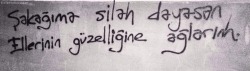 Şakağıma silah dayasan
Ellerinin güzelliğine ağlarım.